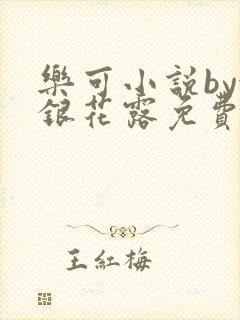 樂可小說by
銀花露免費
王紅梅